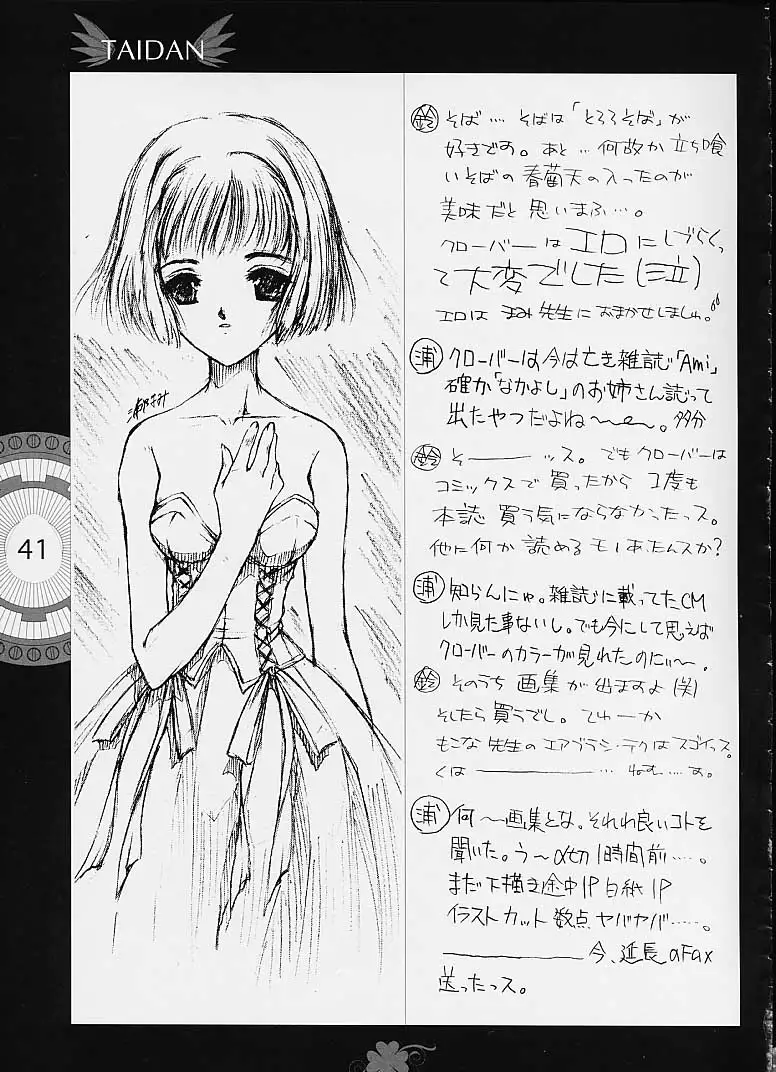 TAIDAN
鈴 そば… そばは「とろろそば」が
好きです。あと…何故か立ち喰
いそばの春菊天の入ったのが
美味だと思いまふ…。
クローバーはエロにしづらくっ
て大変でした(泣)
エロは まみ先生におまかせしましゅ。
浦 クローバーは今は亡き雑誌「Ami」
確か「なかよし」のお姉さん誌って
出たやつだよね〜〜。多分
鈴 そ―――ッス。でもクローバーは
コミックスで買ったから 1度も
本誌 買う気にならなかったっス。
他に何か読めるモノあたんスか?
浦 知らんにゅ。雑誌に載ってたCM
しか見た事ないし。でも今にして思えば
クローバーのカラーが見れたのにぃ〜。
鈴 そのうち 画集が出ますよ(笑)
そしたら買うでし。てゅーか
もこな先生のエアブラシ・テクはスゴイっス。
くは――――――… ねむ……す。
浦 何〜画集とな。それわ良いコトを
聞いた。う〜〆切1時間前……。
まだ下描き途中1P白紙1P
イラストカット数点ヤバヤバ……。
――――――今、延長のFax
送ったっス。
41